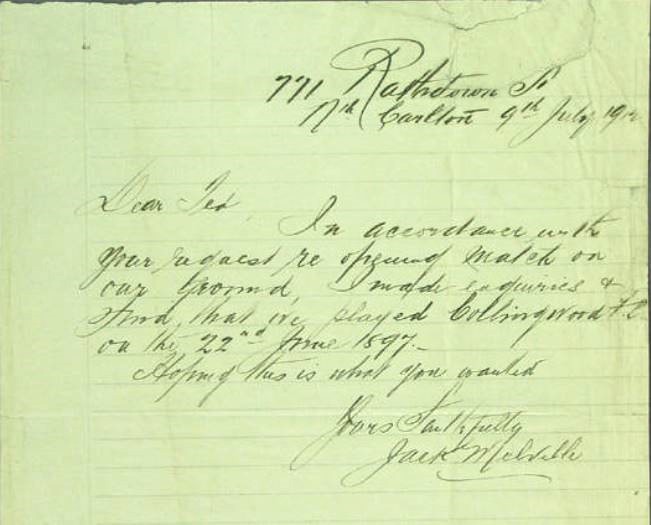 771 Rathdown St
Nth Carlton 9th July 191
Dear Ted, In accordance with
your request re opening match on
our Ground, I made enquiries &
find that we played Collingwood F.C.
on the 22nd June 1897.-
Hoping this is what you wanted
Yours Faithfully
Jack Melville